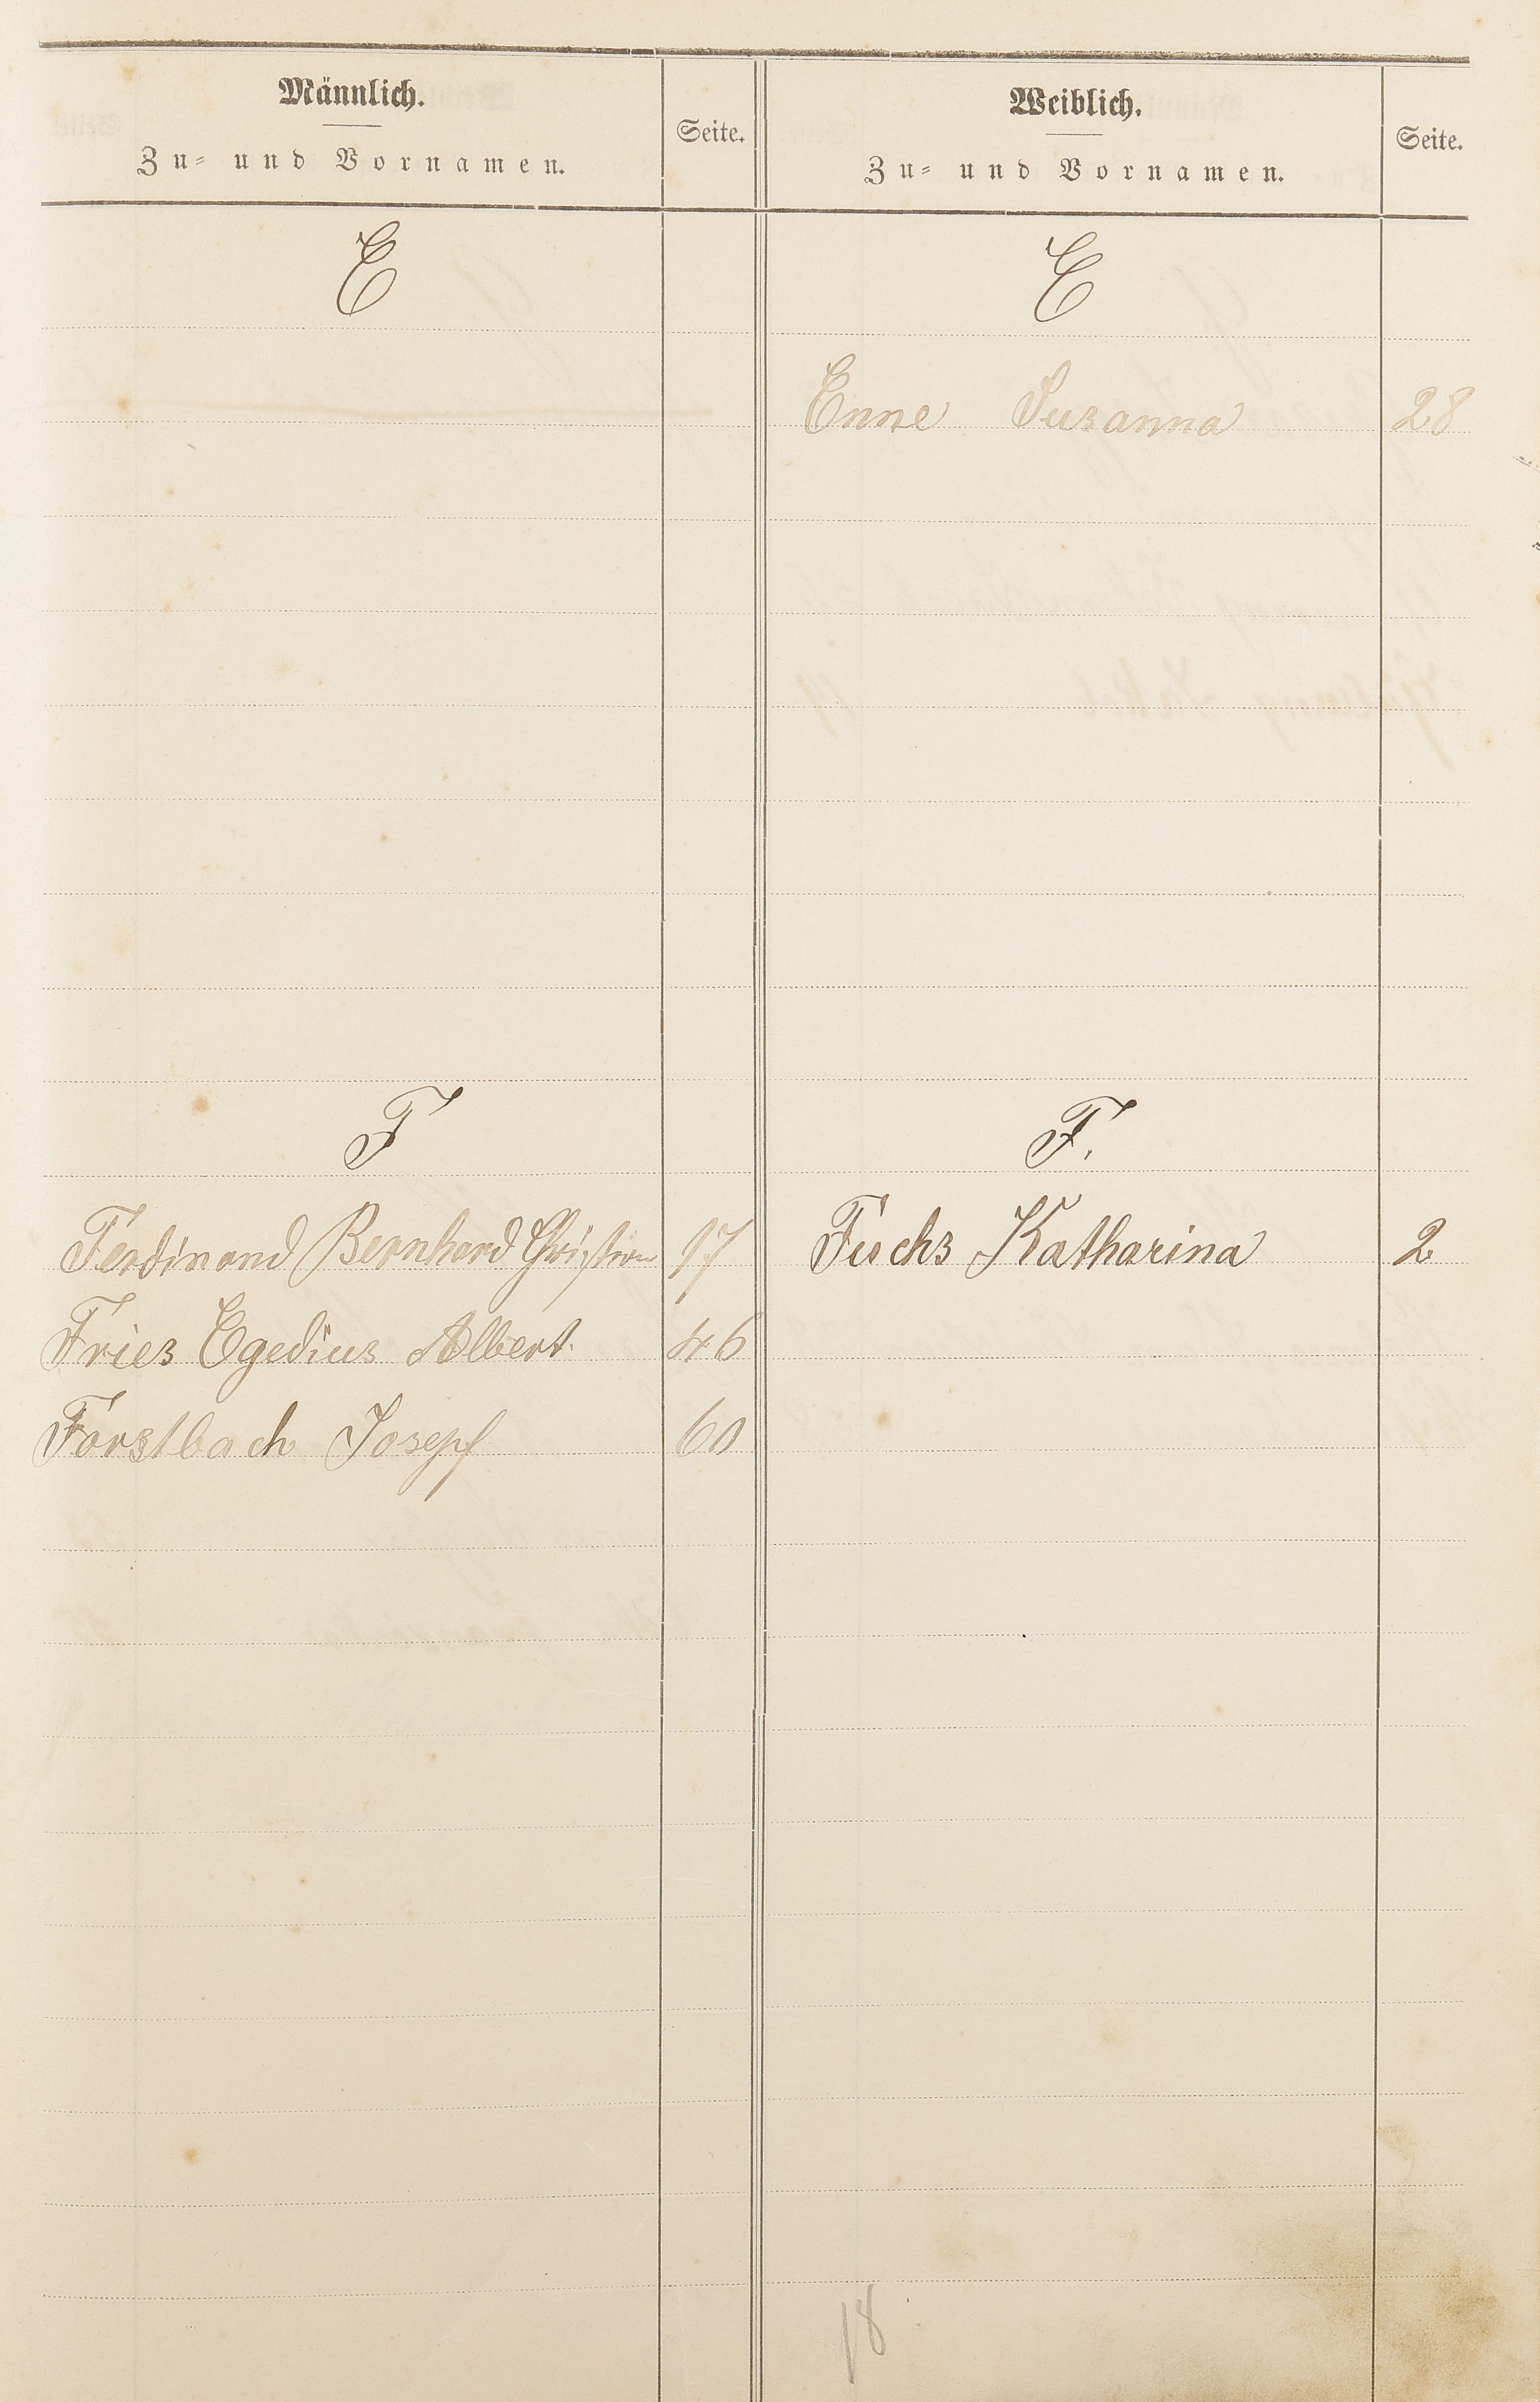 Männlich.
Zu= und Vornamen.
Seite.
E
F
Ferdinand Bernhard Christian 17
Fries Egedius Albert. 46
Forstbach Josepf 60
Weiblich.
Zu= und Vornamen.
Seite.
E
Enne Susanna 28
F.
Fuchs Katharina 2
18